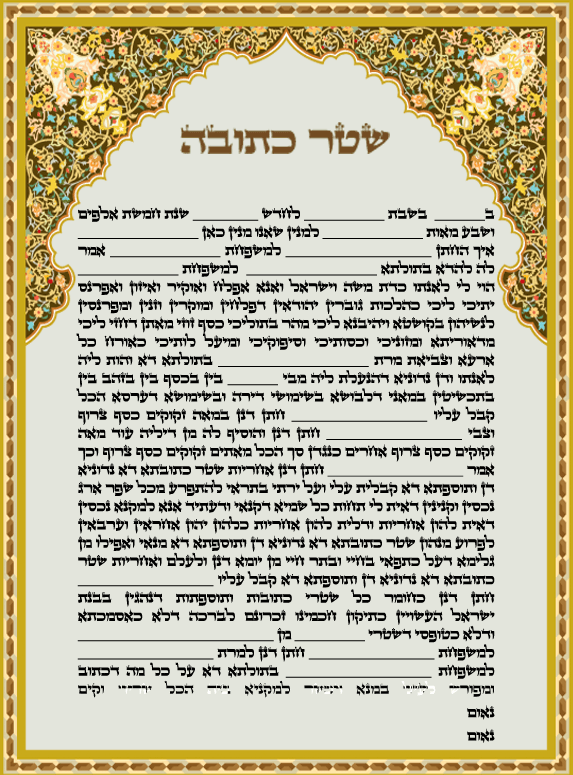 שטר כתובה
ב______ בשבת __________ לחדש ________ שנת חמשת אלפים
ושבע מאות ____________ למנין שאנו מנין כאן ______________
איך החתן ______________ למשפחת ____________ אמר
לה להדא בתולתא ______________ למשפחת ____________
הוי לי לאנתו כדת משה וישראל ואנא אפלח ואוקיר ואיזון ואפרנס
יתיכי ליכי כהלכות גוברין יהודאין דפלחין ומוקרין וזנין ומפרנסין
לנשיהון בקושטא ויהיבנא ליכי מהר בתוליכי כסף זוזי מאתן דחזי ליכי
מדאוריתא ומזוניכי וכסותיכי וסיפוקיכי ומיעל לותיכי כאורח כל
ארעא וצביאת מרת ________________ בתולתא דא והות ליה
לאנתו ודן נדוניא דהנעלת ליה מבי ______ בין בכסף בין בזהב בין
בתכשיטין במאני דלבושא בשימושי דירה ובשימושא דערסא הכל
קבל עליו ________________ חתן דנן במאה זקוקים כסף צרוף
וצבי ________________ חתן דנן והוסיף לה מן דיליה עוד מאה
זקוקים כסף צרוף אחרים כנגדן סך הכל מאתים זקוקים כסף צרוף וכך
אמר ________________ חתן דנן אחריות שטר כתובתא דא נדוניא
דן ותוספתא דא קבלית עלי ועל ירתי בתראי להתפרע מכל שפר ארג
נכסין וקנינין דאית לי תחות כל שמיא דקנאי ודעתיד אנא למקנא נכסין
דאית להון אחריות ודלית להון אחריות כלהון יהון אחראין וערבאין
לפרוע מנהון שטר כתובתא דא נדוניא דן ותוספתא דא מנאי ואפילו מן
גלימא דעל כתפאי בחיי ובתר חיי מן יומא דנן ולעלם ואחריות שטר
כתובתא דא נדוניא דן ותוספתא דא קבל עליו ________________
חתן דנן כחומר כל שטרי כתובות ותוספתות דנהגין בבנת
ישראל העשויין כתיקון חכמינו זכרונם לברכה דלא כאסמכתא
ודלא כטופסי דשטרי ________ מן ______________________
למשפחת ________________ חתן דנן למרת ________________
למשפחת ________________ בתולתא דא על כל מה דכתוב
ומפורש במנא למקניא הכל וקים
נאום
נאום